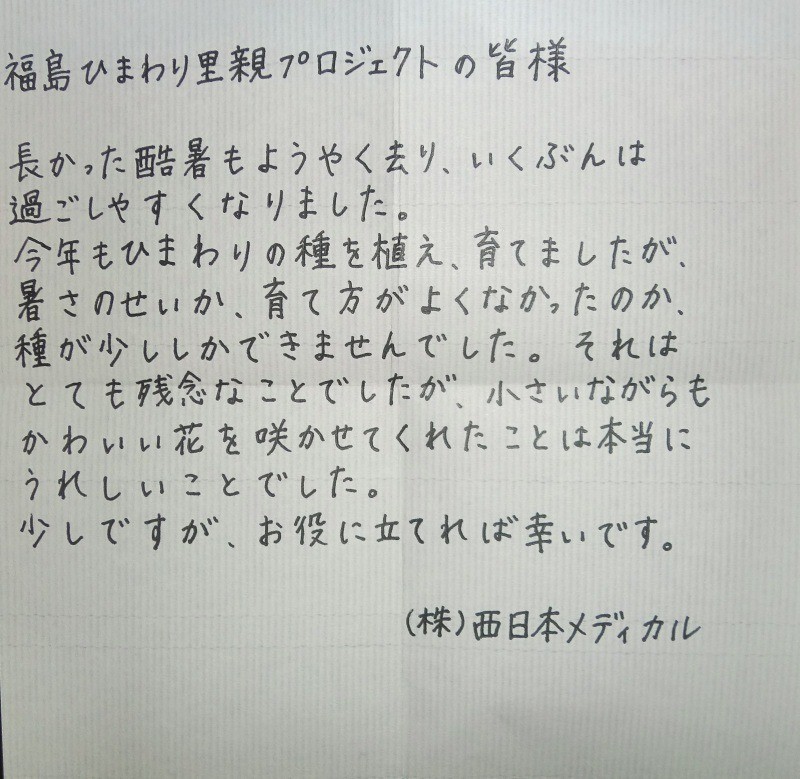 福島ひまわり里親プロジェクトの皆様
長かった酷暑もようやく去り、いくぶんは
過ごしやすくなりました。
今年もひまわりの種を植え、育てましたが、
暑さのせいか、育て方がよくなかったのか、
種が少ししかできませんでした。それは
とても残念なことでしたが、小さいながらも
かわいい花を咲かせてくれたことは本当に
うれしいことでした。
少しですが、お役に立てれば幸いです。
(株)西日本メディカル